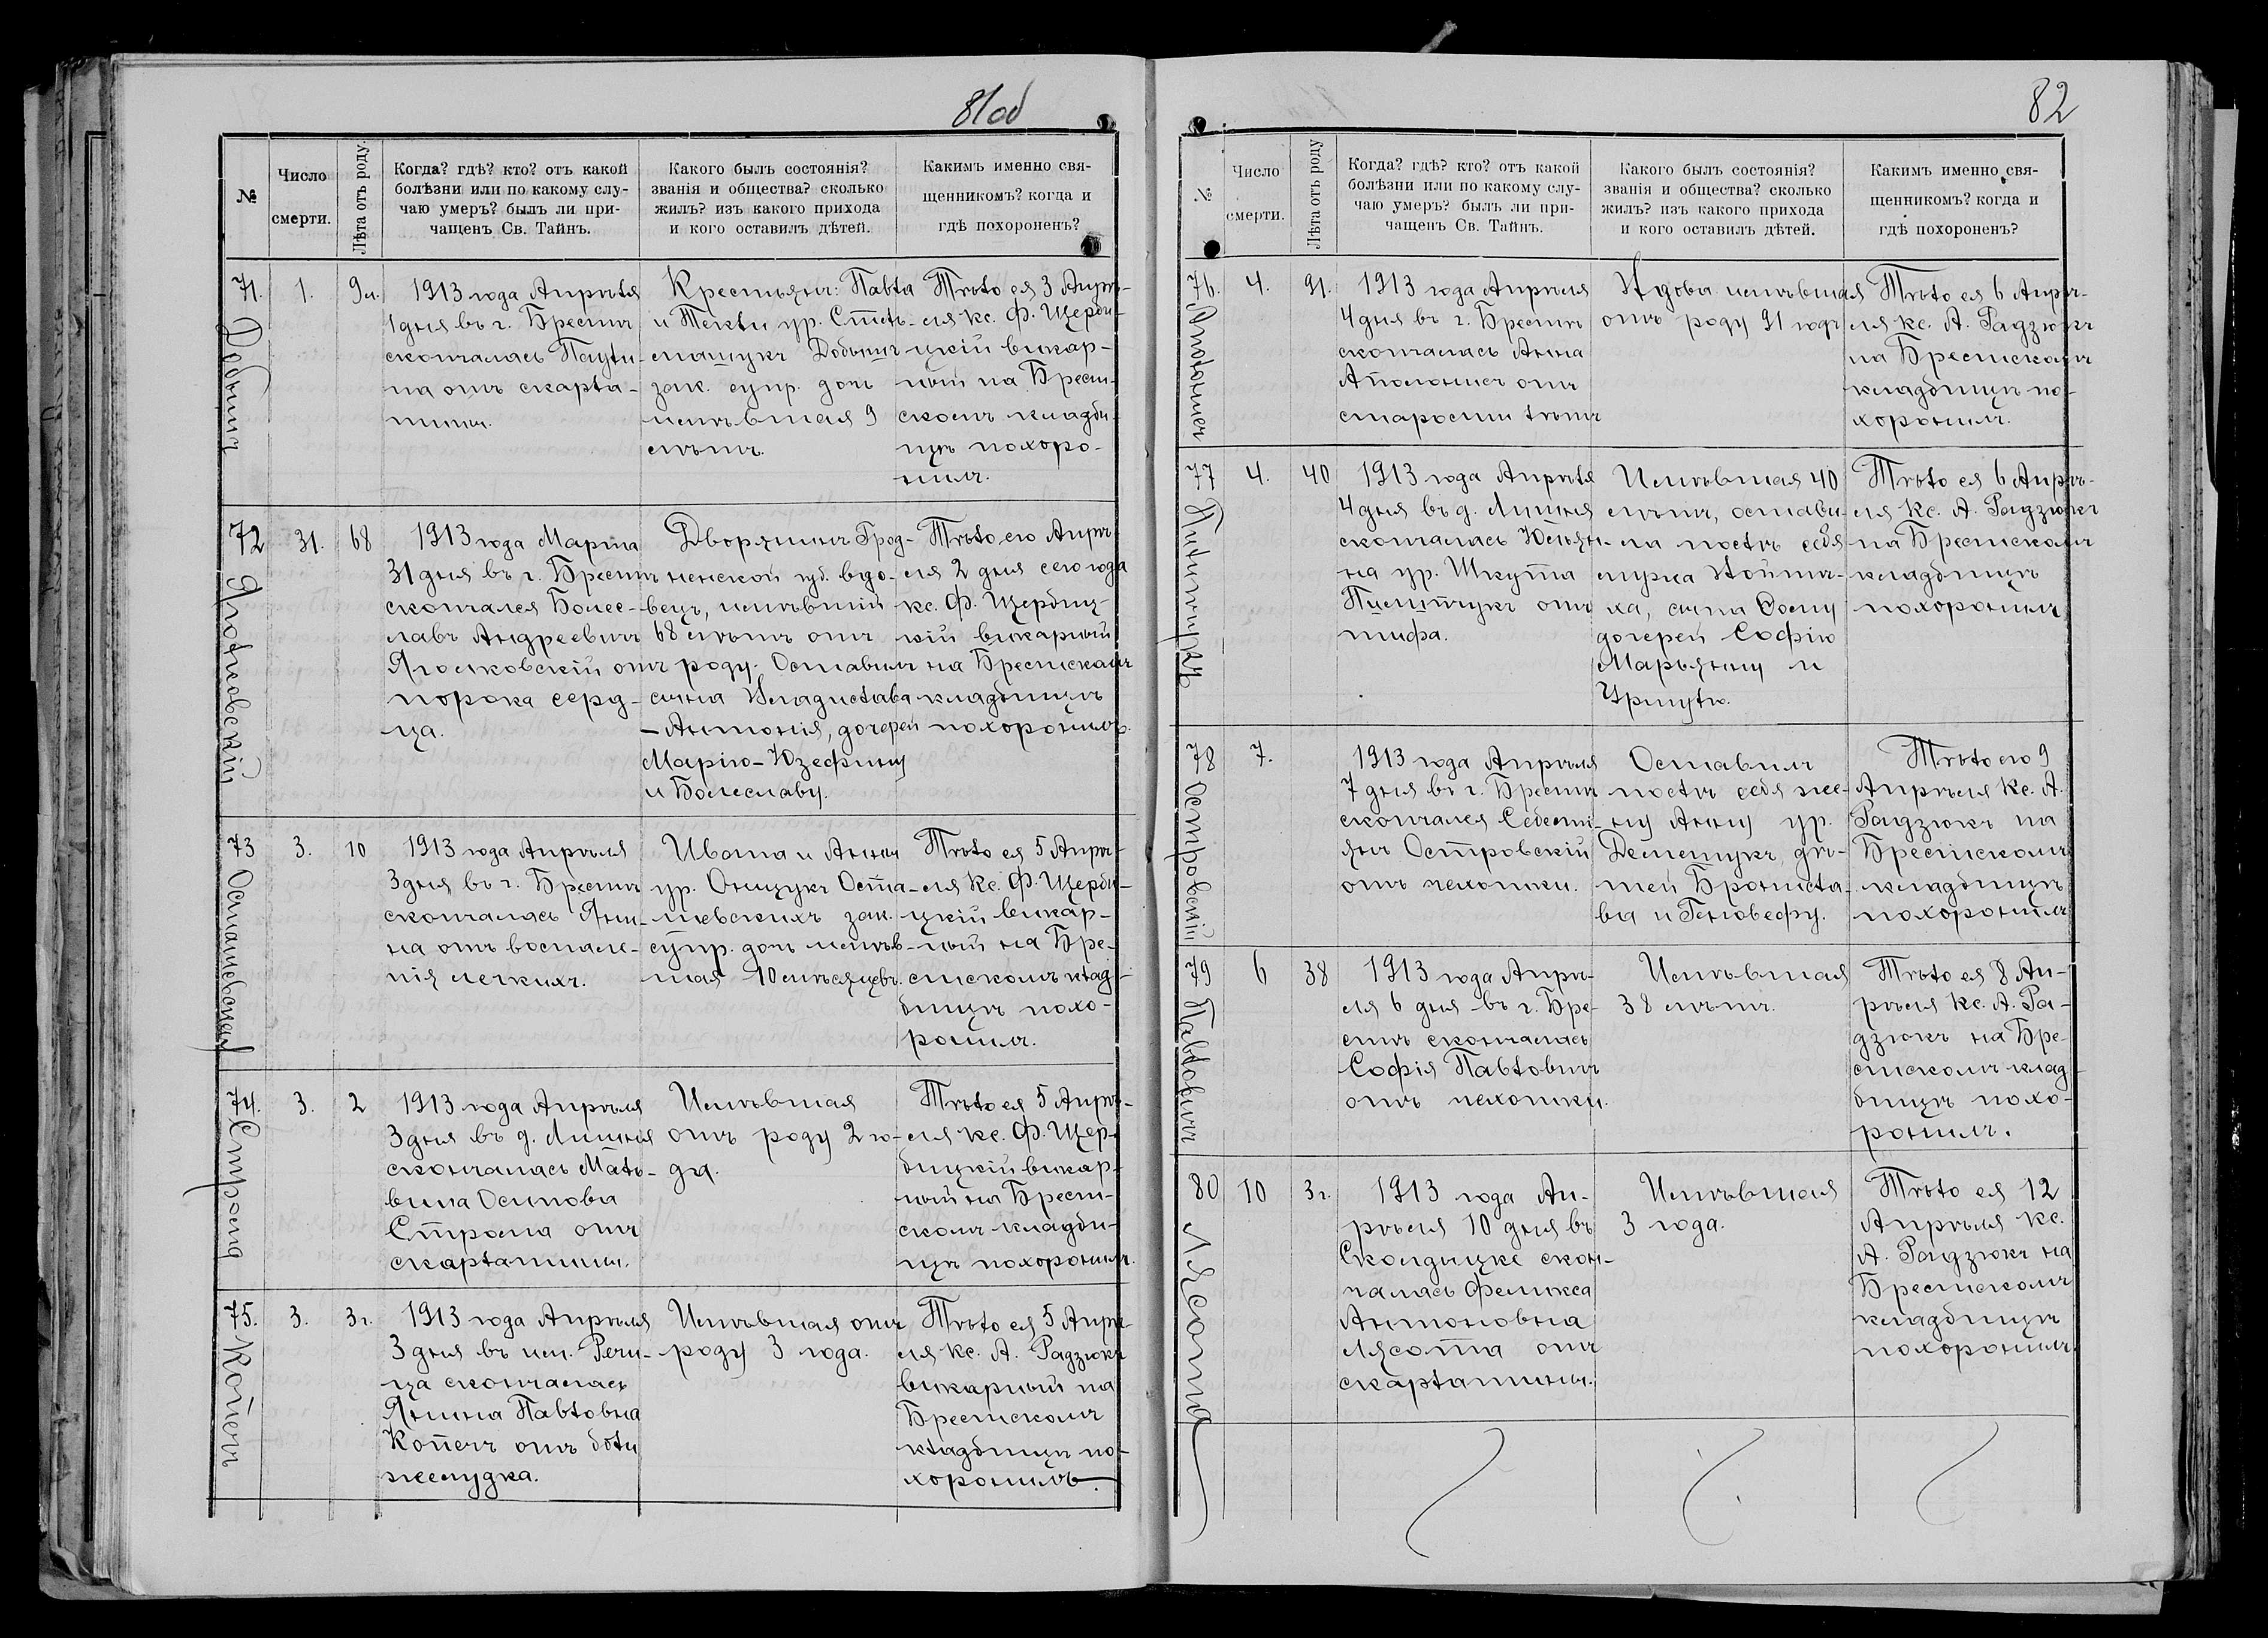 81об
№
Число
смерти.
Лѣта отъ роду.
Когда? гдѣ? кто? отъ какой
болѣзни или по какому слу-
чаю умеръ? былъ ли при-
чащенъ Св. Тайнъ.
Какого былъ состоянія?
званія и общества? сколько
жилъ? изъ какого прихода
и кого оставилъ дѣтей.
Какимъ именно свя-
щенникомъ? когда и
гдѣ похороненъ?
71.
1.
9л.
1913 года Апрѣля
1 дня въ г. Брестѣ
скончалась Паули-
на отъ скарла-
тины.
Крестьянъ: Павла
и Теклы ур.
зак. супр. дочь
имѣвшая 9
лѣтъ.
Тѣло ея 3 Апрѣ-
ля кс. Ф. Щерби-
цкій викар-
ный на Брест-
скомъ кладби-
щѣ похоро-
нилъ.
72
31.
68
Яголковскій
1913 года Марта
31 дня въ г. Брестѣ
скончался Болес-
лавъ Андреевичъ
Яголковскій отъ
порока серд-
ца.
Дворянинъ Грод-
ненской губ. вдо-
вецъ, имѣвшій
68 лѣтъ отъ
роду. Оставилъ
сына Владислава
-Антонія, дочерей
Марію-Юзефину
и Болеславу.
Тѣло его Апрѣ-
ля 2 дня сего года
кс. Ф. Щербиц-
кій викарный
на Брестскомъ
кладбищѣ
похоронилъ.
73
3.
10
1913 года Апрѣля
3 дня въ г. Брестѣ
скончалась Яни-
на отъ воспале-
нія легкихъ.
Ивана и Анны
ур. Онищукъ Оста-
шевскихъ зак.
супр. дочь имѣв-
шая 10 мѣсяцевъ.
Тѣло ея 5 Апрѣ-
ля Кс. Ф. Щерби-
цкій викар-
ный на Бре-
стскомъ клад-
бищѣ похо-
ронилъ.
74.
3.
2
Строна
1913 года Апрѣля
3 дня въ д.
скончалась Маль-
вина Осипова
Строна отъ
скарлатины.
Имѣвшая
отъ роду 2 го-
да.
Тѣло ея 5 Апрѣ-
ля кс. Ф. Щер-
бицкій викар-
ный на Брест-
скомъ кладби-
щѣ похоронилъ.
75.
3.
3г.
Копечъ
1913 года Апрѣля
3 дня въ им. Речи-
ца скончалась
Янина Павловна
Копечъ отъ боли
желудка.
Имѣвшая отъ
роду 3 года.
Тѣло ея 5 Апрѣ-
ля кс. А. Радзюкъ
викарный на
Брестскомъ
кладбищѣ по-
хоронилъ.
82
№
Число
смерти.
Лѣта отъ роду
Когда? гдѣ? кто? отъ какой
болѣзни или по какому слу-
чаю умеръ? былъ ли при-
чащенъ Св. Тайнъ.
Какого былъ состоянія?
званія и общества? сколько
жилъ? изъ какого прихода
и кого оставилъ дѣтей.
Какимъ именно свя-
щенникомъ? когда и
гдѣ похороненъ?
76.
4.
91.
1913 года Апрѣля
4 дня въ г. Брестѣ
скончалась Анна
отъ
старости лѣтъ
Вдова имѣвшая
отъ роду 91 годъ
Тѣло ея 6 Апрѣ-
ля кс. А. Радзюкъ
на Брестскомъ
кладбищѣ по-
хоронилъ.
77
4.
40
1913 года Апрѣля
4 дня въ д.
скончалась Юстын-
на ур. Шкута
отъ
тифа.
Имѣвшая 40
лѣтъ, остави-
ла послѣ себя
мужа Войтѣ-
ха, сына
дочерей Софію
Марьянну и
Уршулю.
Тѣло ея 6 Апрѣ-
ля Кс. А. Радзюкъ
на Брестскомъ
кладбищѣ
похоронилъ
78
7.
Островскій
1913 года Апрѣля
7 дня въ г. Брестѣ
скончался Себасти-
янъ Островскій
отъ чахотки.
Оставилъ
послѣ себя же-
ну Анну ур.
Демешукъ, дѣ-
тей Бронисла-
ва и Геновефу.
Тѣло его 9
Апрѣля Кс. А.
Радзюкъ на
Брестскомъ
кладбищѣ
похоронилъ
79
6
38
Павловичъ
1913 года Апрѣ-
ля 6 дня въ г. Бре-
стѣ скончалась
Софія Павловичъ
отъ чахотки.
Имѣвшая
38 лѣтъ.
Тѣло ея 8 Ап-
рѣля Кс. А. Ра-
дзюкъ на Бре-
стскомъ клад-
бищѣ похо-
ронилъ.
80
10
3г.
Лясота
1913 года Ап-
рѣля 10 дня въ
скон-
чалась Феликса
Антоновна
Лясота отъ
скарлатины.
Имѣвшая
3 года.
Тѣло ея 12
Апрѣля Кс.
А. Радзюкъ на
Брестскомъ
кладбищѣ
похоронилъ.